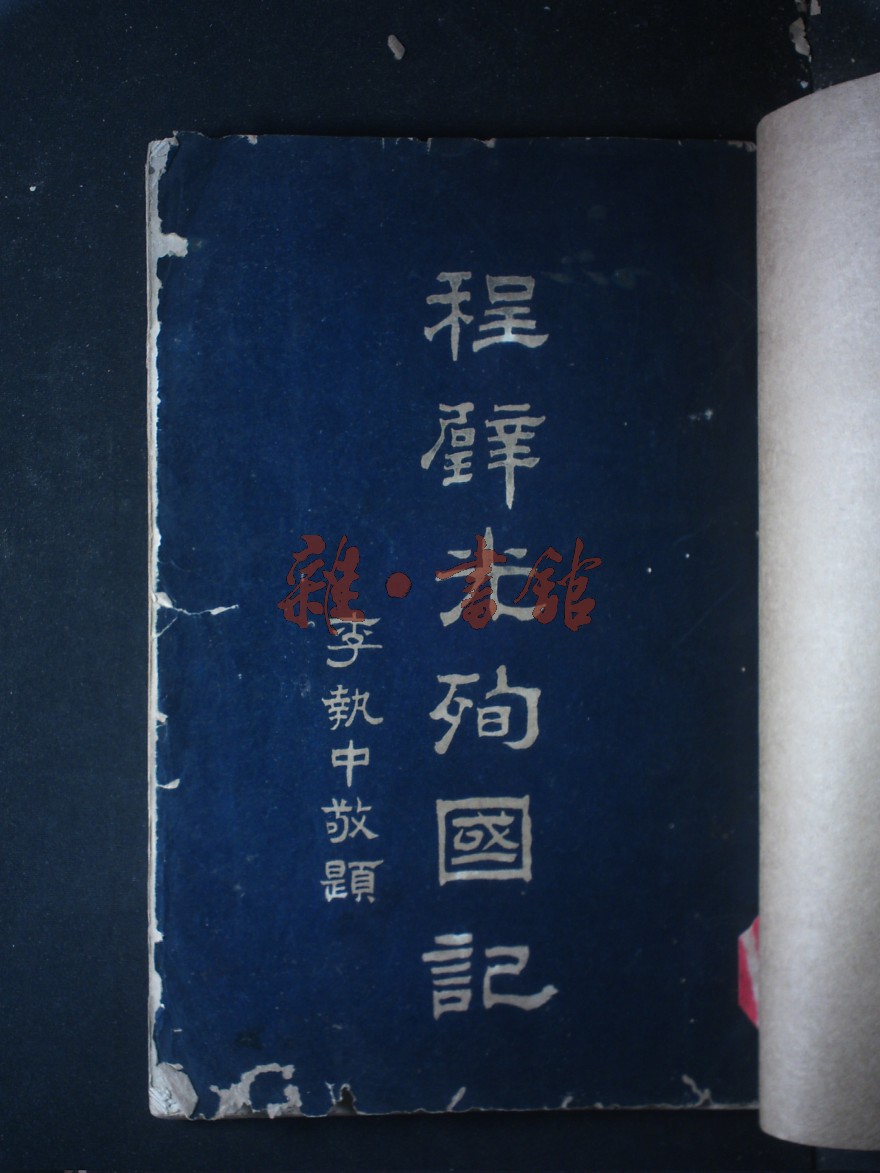 程璧光殉國記
李執中敬題
雜·書館